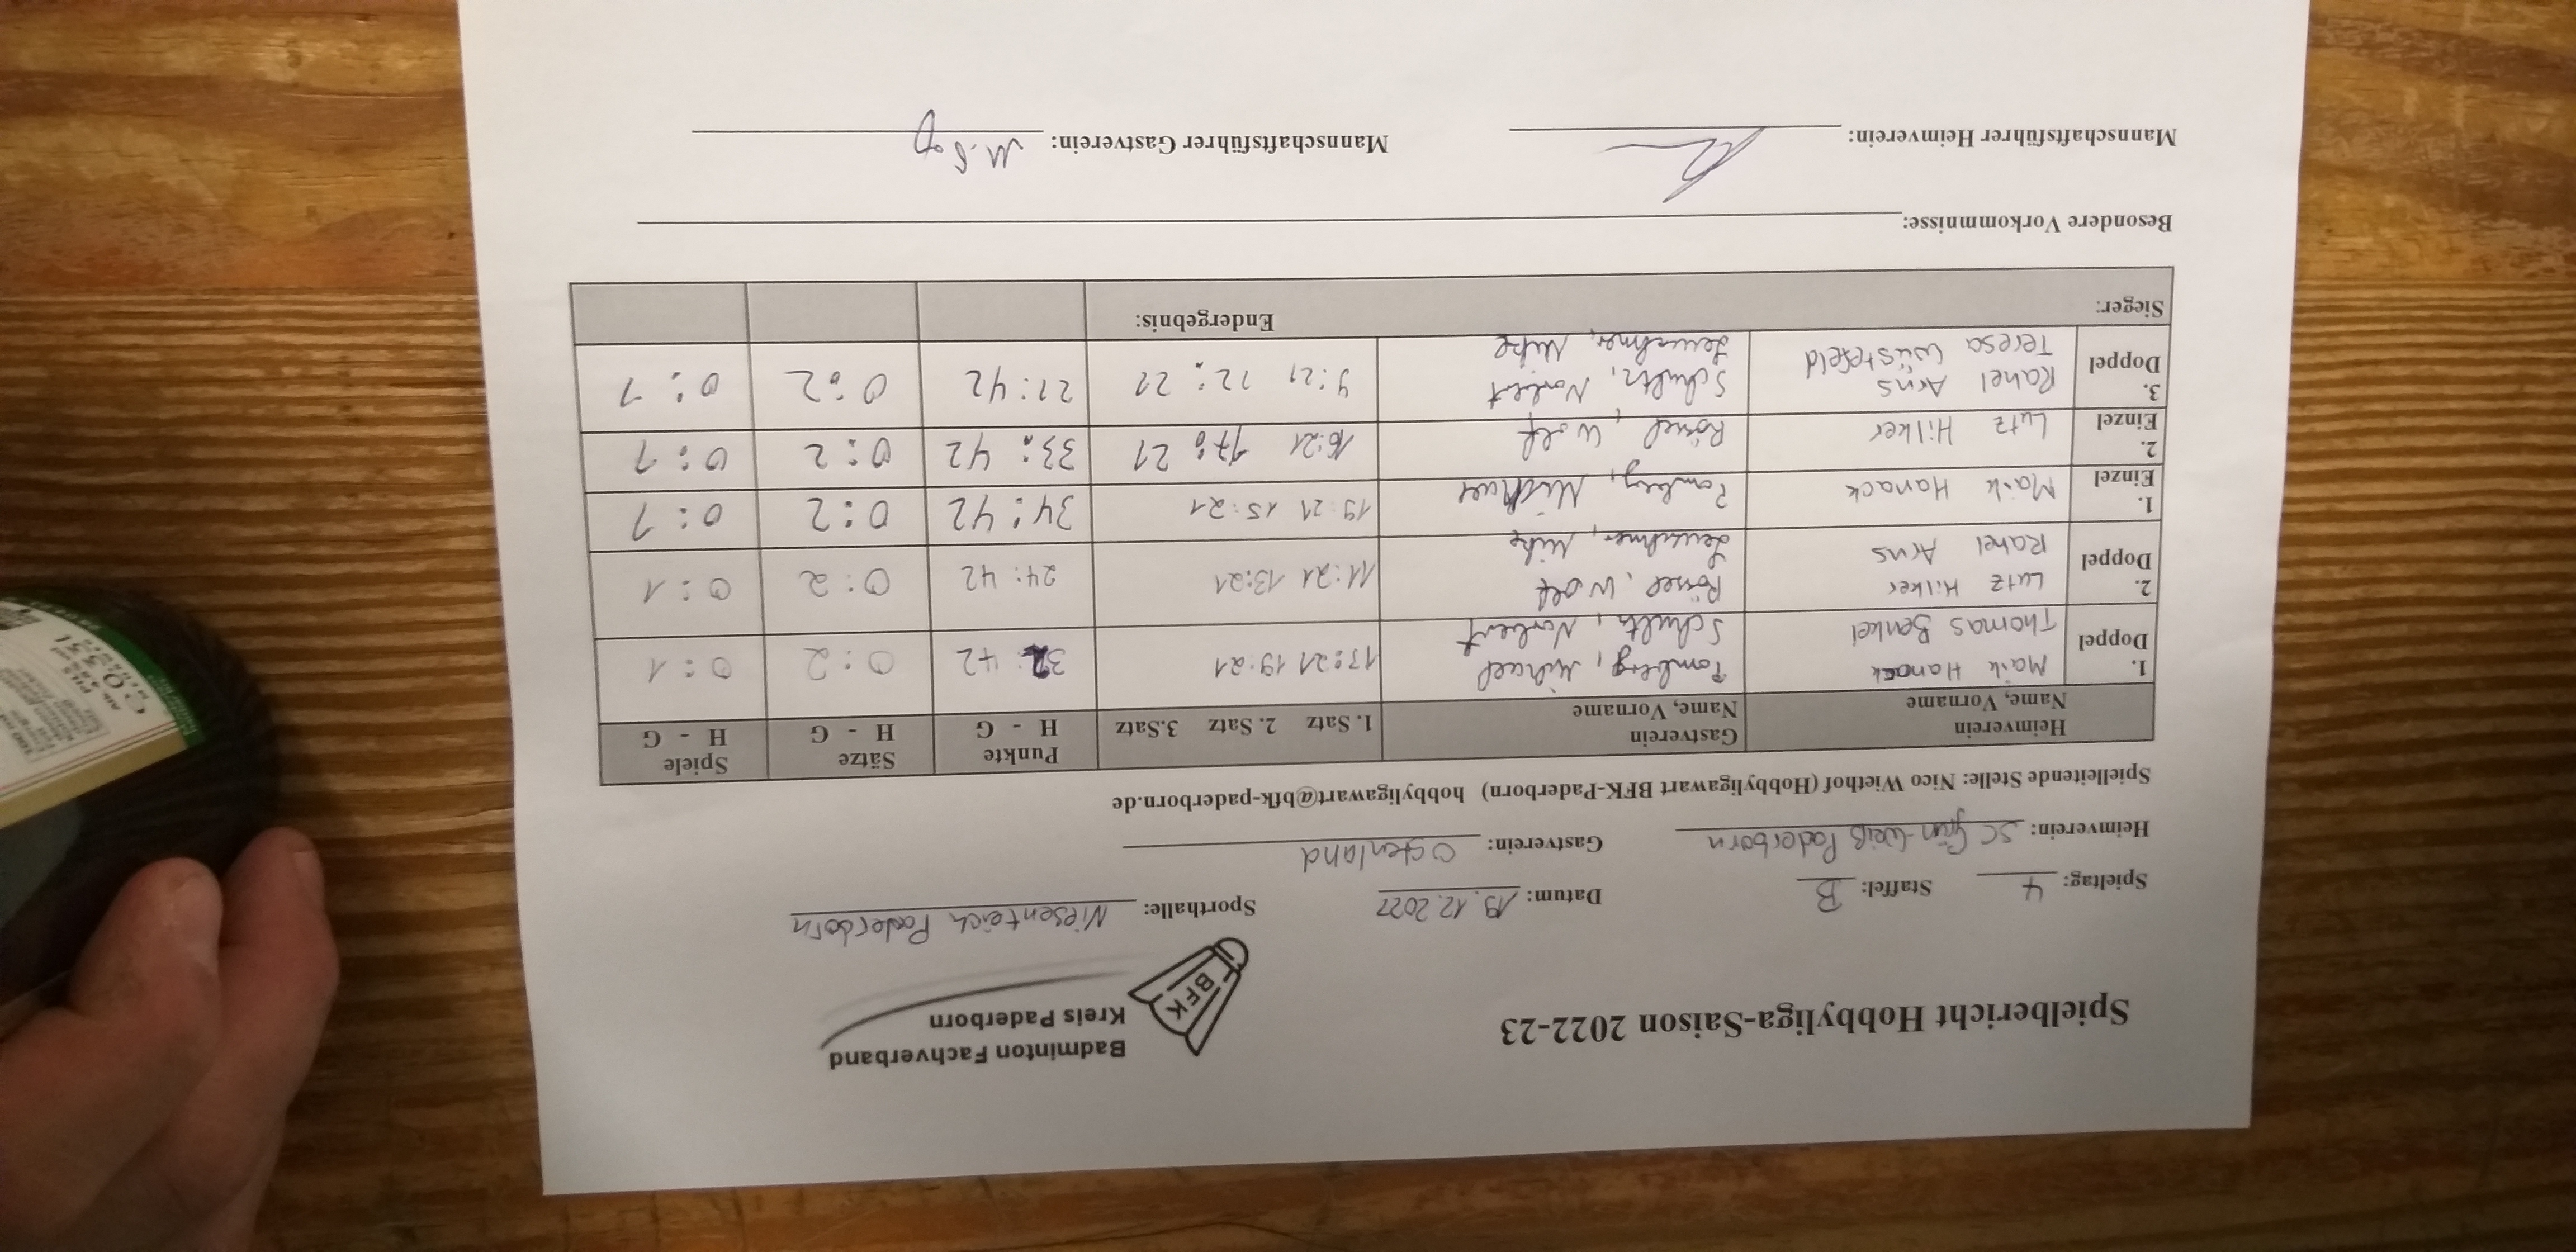 Spielbericht Hobbyliga-Saison 2022-23
Badminton Fachverband
Kreis Paderborn
BFK
Spieltag: 4 Staffel: B Datum: 19.12.2022 Sporthalle: Niesenteich Paderborn
Heimverein: SC Grün-Weiß Paderborn Gastverein: Ostenland
Spielleitende Stelle: Nico Wiethof (Hobbyligawart BFK-Paderborn) hobbyligawart@bfk-paderborn.de
Heimverein Gastverein Punkte Sätze Spiele
Name, Vorname Name, Vorname 1. Satz 2. Satz 3.Satz H - G H - G H - G
1. Maik Hanack Romberg, Michael 13:21 19:21 32:42 0:2 0:1
Doppel Thomas Benkel Schultz, Norbert
2. Lutz Hilker Rössel, Wolf 11:21 13:21 24:42 0:2 0:1
Doppel Rahel Arns Leuschner, Mike
1. Maik Hanack Romberg, Michael 19:21 15:21 34:42 0:2 0:1
Einzel
2. Lutz Hilker Rössel, Wolf 16:21 17:21 33:42 0:2 0:1
Einzel
3. Rahel Arns Schultz, Norbert 9:21 12:21 21:42 0:2 0:1
Doppel Teresa Wüstefeld Leuschner, Mike
Sieger: Endergebnis:
Besondere Vorkommnisse:
Mannschaftsführer Heimverein: Mannschaftsführer Gastverein:
PILS